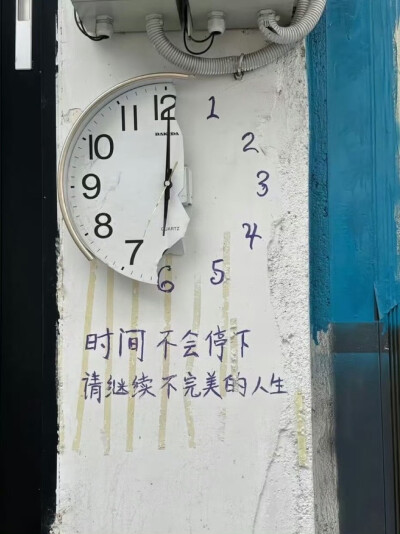 12
11
1
10
2
9
3
8
4
7
5
6
QUARTZ
时间不会停下
请继续不完美的人生